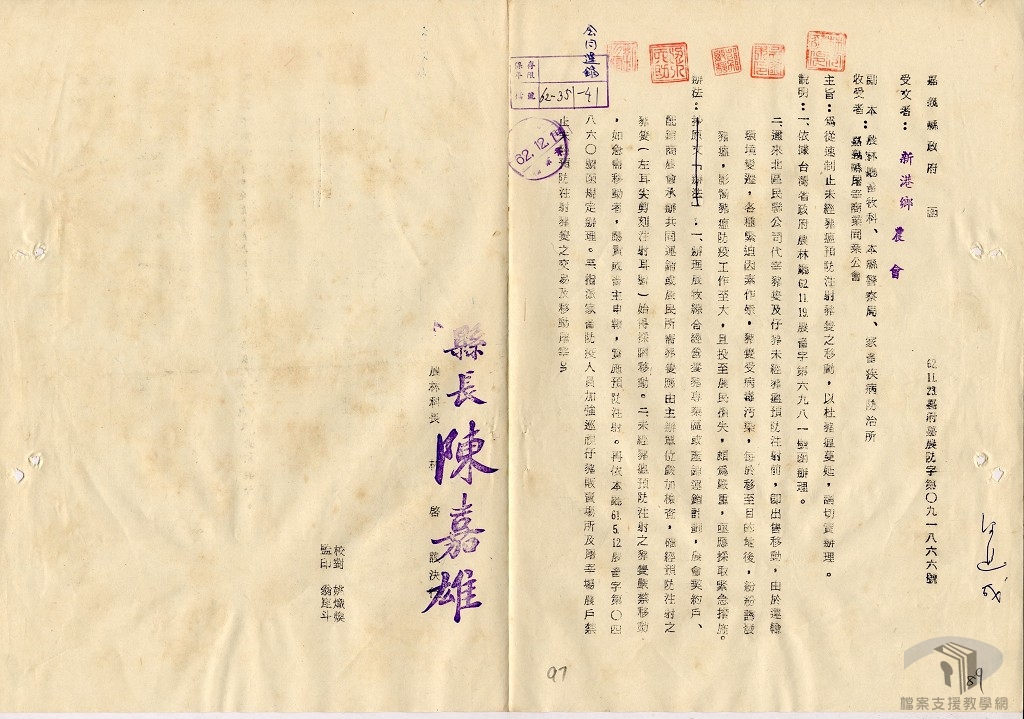 嘉義縣政府 函
62.11.23.嘉府嘉農防字第〇九一八六六號
受文者：新港鄉農會
副本收受者：農林廳畜牧科、本縣警察局、家畜疾病防治所
嘉義縣屠宰商業同業公會
主旨：為從速制止未經豬瘟預防注射豬隻之移動，以杜豬瘟蔓延，請切實辦理。
說明：一、依據台灣省政府農林廳62.11.19.農畜字第六九八一號函辦理。
二、邇來北區民聯公司代宰豬隻及仔豬未經豬瘟預防注射前，即出售移動，由於運輸
環境變遷，各種緊迫因素作祟，豬隻受病毒污染，每於移至目的地後，紛紛誘發
豬瘟，影響豬瘟防疫工作至大，且投至農民損失，頗為嚴重，亟應採取緊急措施。
辦法：
一、辦理農牧綜合經營養豬專業區或產銷運銷計劃，農會契約戶、
配運商農會承辦共同運銷或農民所需豬隻應由主辦單位嚴加檢查，確經預防注射之
豬隻（左耳尖剪刻注射耳號）始得採購移動。二、未經豬瘟預防注射之豬隻嚴禁移動
，如急需移動者，應責成畜主申報，實施預防注射。再依本廳61.5.12農畜字第〇四
八六〇號函規定辦理。三、指派家畜防疫人員加強巡視仔豬販賣場所及屠宰場農戶禁
止未經預防注射豬隻之交易及移動屠宰。
存限
62-35-41
62.12.1
縣長 陳嘉雄
農林科長 林 啓 決行
校對
監印
97
89
檔案支援教學網